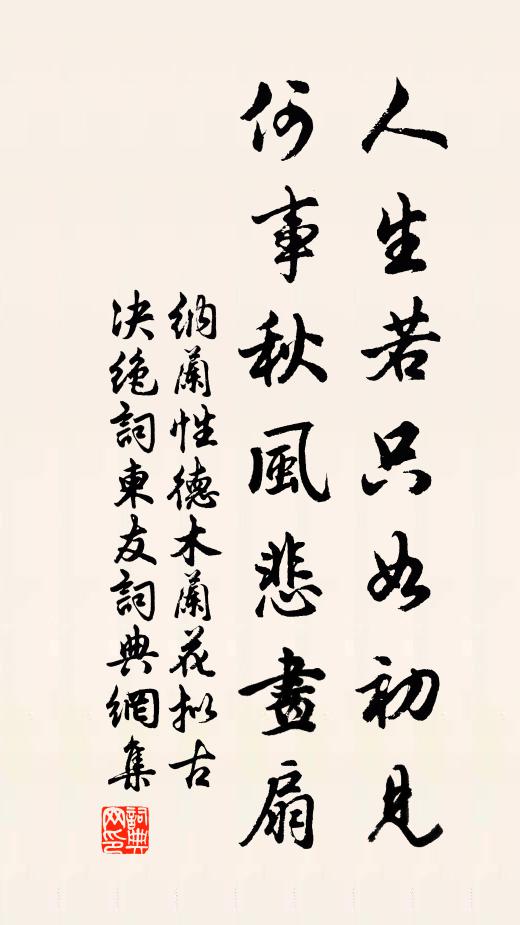 人生若只如初見
何事秋風悲畫扇
納蘭性德木蘭花拟古
决绝詞東友詞典網集
詞典網印